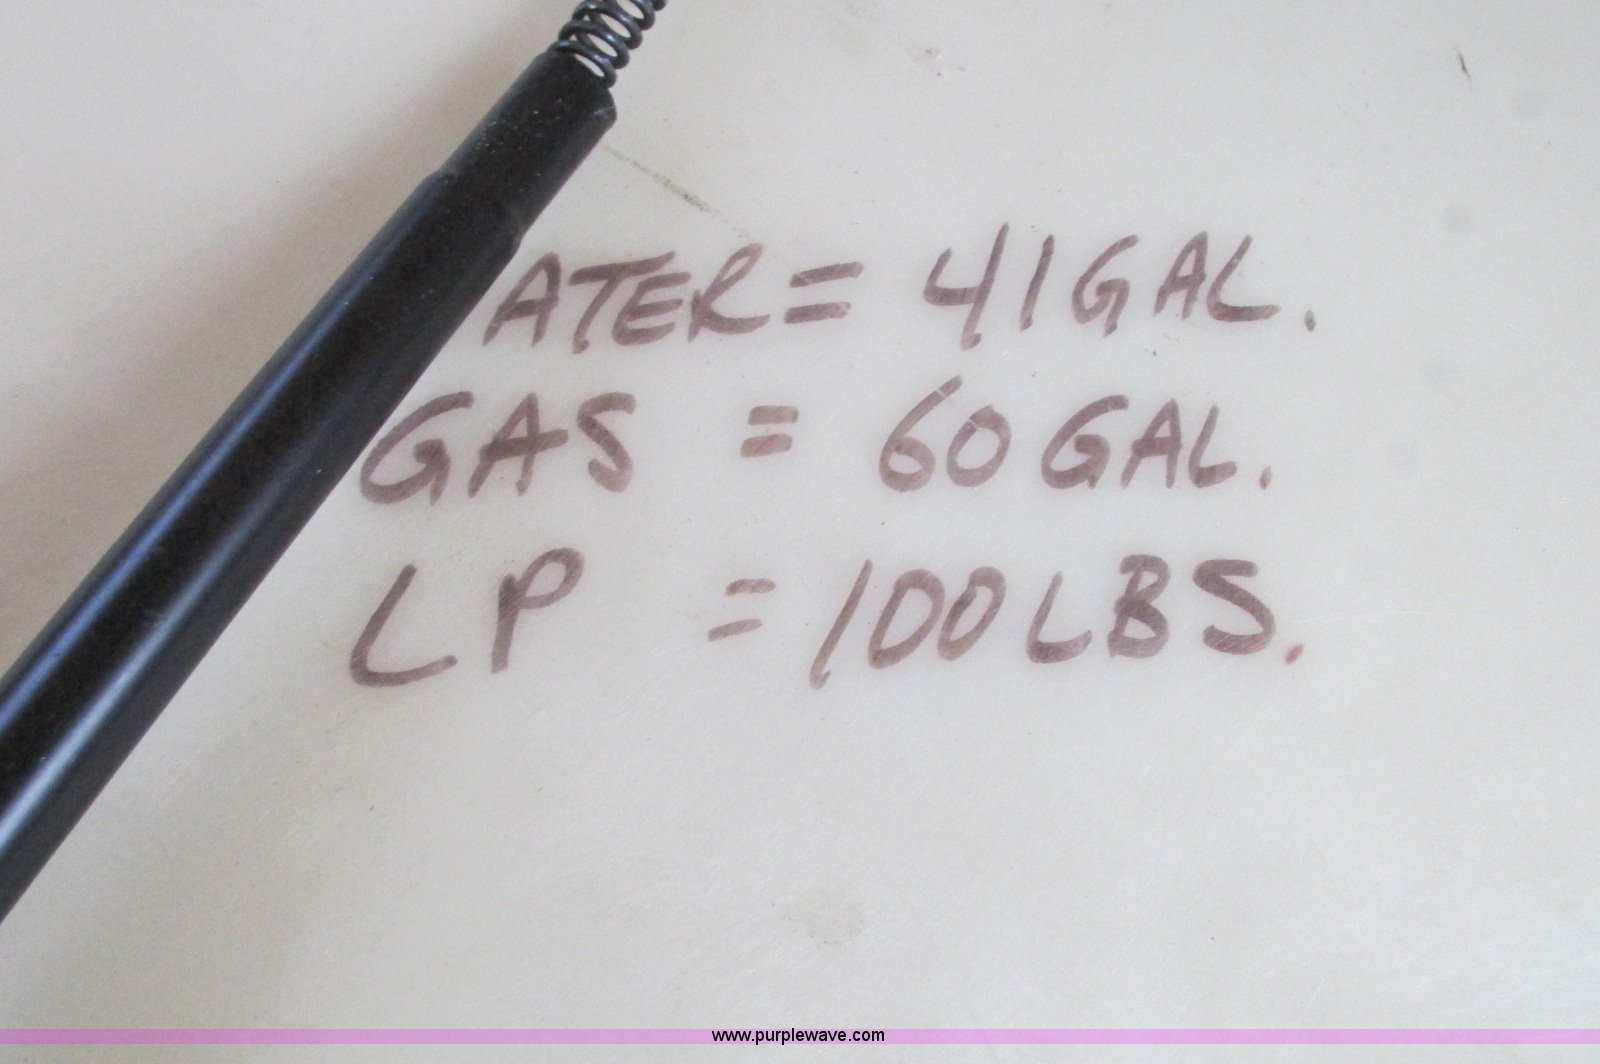 WATER = 41 GAL.
GAS = 60 GAL.
LP = 100 LBS.
www.purplewave.com